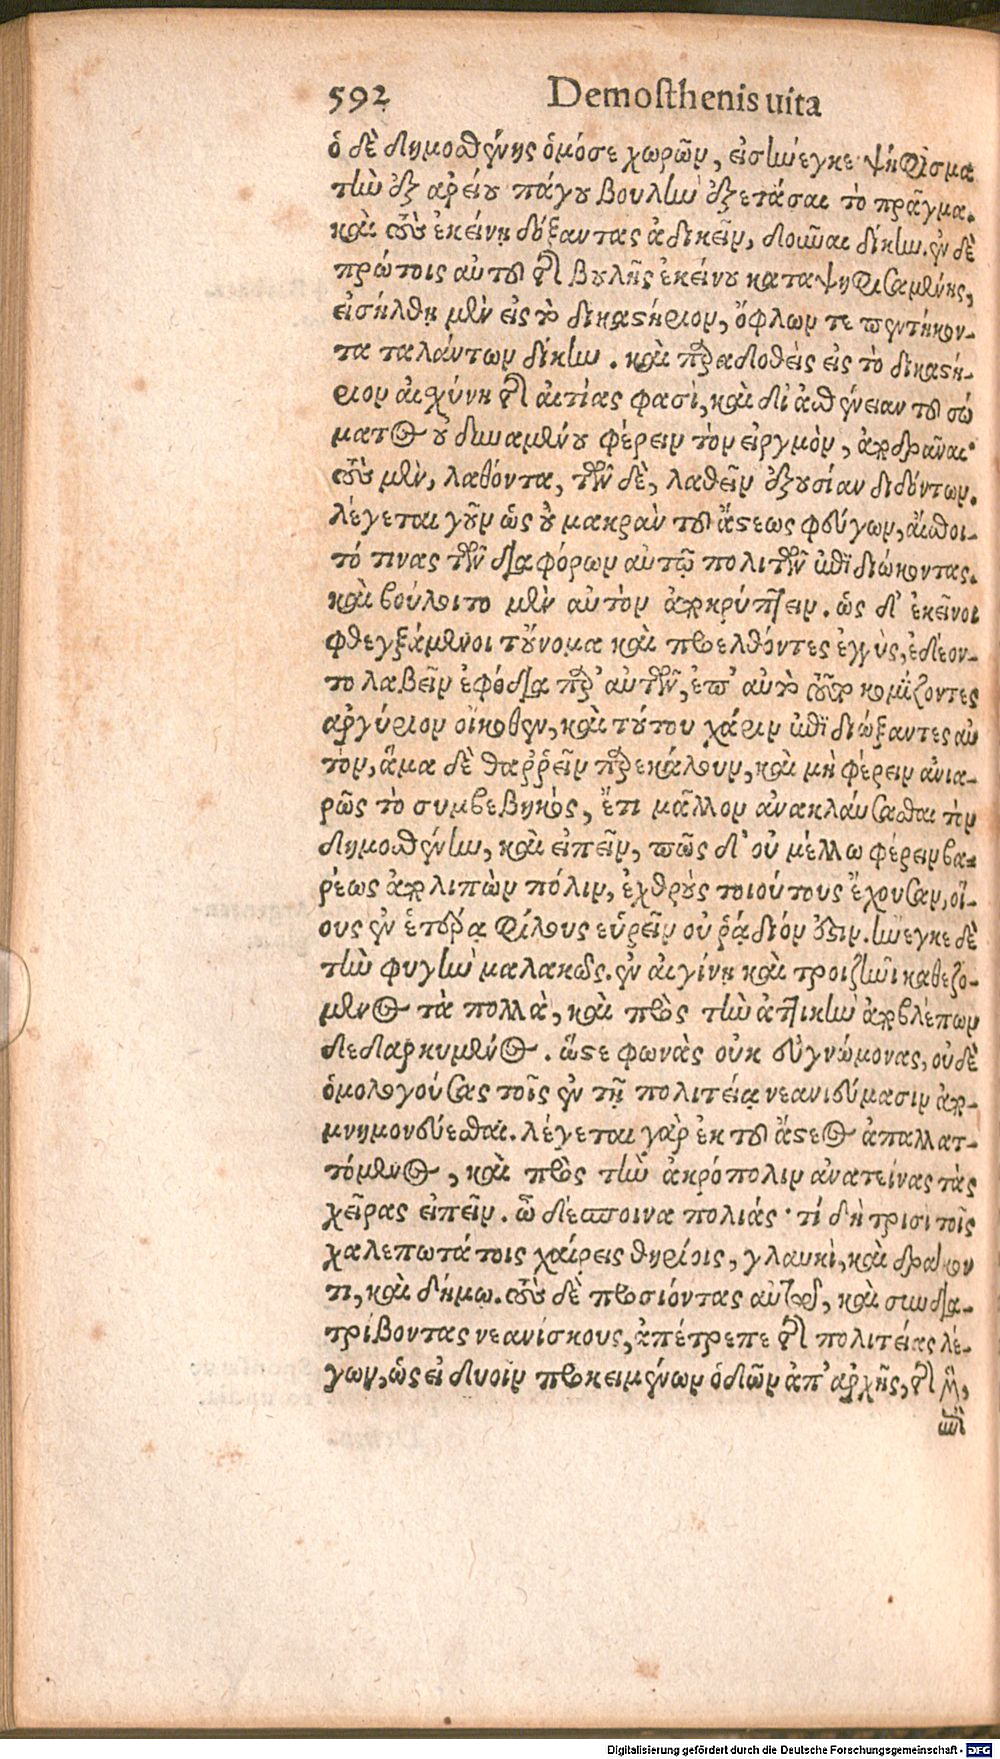 592 Demosthenis uita
ὁ δὲ δημοσθένης ὁμόσε χωρῶν, εἰσήνεγκε ψήφισμα
τὴν ἐξ ἀρείου πάγου βουλὴν ἐξετάσαι τὸ πρᾶγμα.
καὶ τοὺς ἐκείνῃ δόξαντας ἀδικεῖν, δοῦναι δίκην. ἐν δὲ
πρώτοις αὐτοῦ τῆς βουλῆς ἐκείνου καταψηφισαμένης,
εἰσήλθη μὲν εἰς τὸ δικαστήριον, ὄφλων τε πεντήκον-
τα ταλάντων δίκην. καὶ παραδοθεὶς εἰς τὸ δικαστή-
ριον αἰσχύνῃ τῆς αἰτίας φασὶ, καὶ δι' ἀσθένειαν τοῦ σώ
ματος οὐ δυναμένου φέρειν τὸν εἱργμὸν, ἀποδρᾶναι·
τοὺς μὲν, λαθόντα, τῶν δὲ, λαθεῖν ἐξουσίαν διδόντων.
λέγεται γοῦν ὡς οὐ μακρὰν τοῦ ἄστεως φεύγων, αἴσθοι-
τό τινας τῶν διαφόρων αὐτῷ πολιτῶν ἐπιδιώκοντας.
καὶ βούλοιτο μὲν αὐτὸν ἀποκρύπτειν. ὡς δ' ἐκεῖνοι
φθεγξάμενοι τοὔνομα καὶ προελθόντες ἐγγὺς, ἐδέον-
το λαβεῖν ἐφόδια παρ' αὐτῶν, ἐπ' αὐτὸ τοῦτο κομίζοντες
ἀργύριον οἴκοθεν, καὶ τούτου χάριν ἐπιδιώξαντες αὐ
τὸν, ἅμα δὲ θαῤῥεῖν παρεκάλουν, καὶ μὴ φέρειν ἀνια-
ρῶς τὸ συμβεβηκὸς, ἔτι μᾶλλον ἀνακλαύσασθαι τὸν
δημοσθένην, καὶ εἰπεῖν, πῶς δ' οὐ μέλλω φέρειν βα-
ρέως ἀπολιπὼν πόλιν, ἐχθροὺς τοιούτους ἔχουσαν, οἵ-
ους ἐν ἑτέρᾳ φίλους εὑρεῖν οὐ ῥᾴδιόν ἐστιν. ἤνεγκε δὲ
τὴν φυγὴν μαλακῶς. ἐν αἰγίνῃ καὶ τροιζῆνι καθεζό-
μενος τὰ πολλὰ, καὶ πρὸς τὴν ἀττικὴν ἀποβλέπων
δεδαρκυμένος. ὥστε φωνὰς οὐκ εὐγνώμονας, οὐδὲ
ὁμολογούσας τοῖς ἐν τῇ πολιτείᾳ νεανιεύμασιν ἀπο-
μνημονεύεσθαι. λέγεται γὰρ ἐκ τοῦ ἄστεος ἀπαλλατ-
τόμενος, καὶ πρὸς τὴν ἀκρόπολιν ἀνατείνας τὰς
χεῖρας εἰπεῖν. ὦ δέσποινα πολιάς· τί δὴ τρισὶ τοῖς
χαλεπωτάτοις χαίρεις θηρίοις, γλαυκὶ, καὶ δράκον
τι, καὶ δήμῳ. τοὺς δὲ προσιόντας αὐτῷ, καὶ συνδια-
τρίβοντας νεανίσκους, ἀπέτρεπε τῆς πολιτείας λέ-
γων, ὡς εἰ δυοῖν προκειμένων ὁδῶν ἀπ' ἀρχῆς, τῆς μὲν,
ἐπὶ
Digitalisierung gefördert durch die Deutsche Forschungsgemeinschaft - DFG